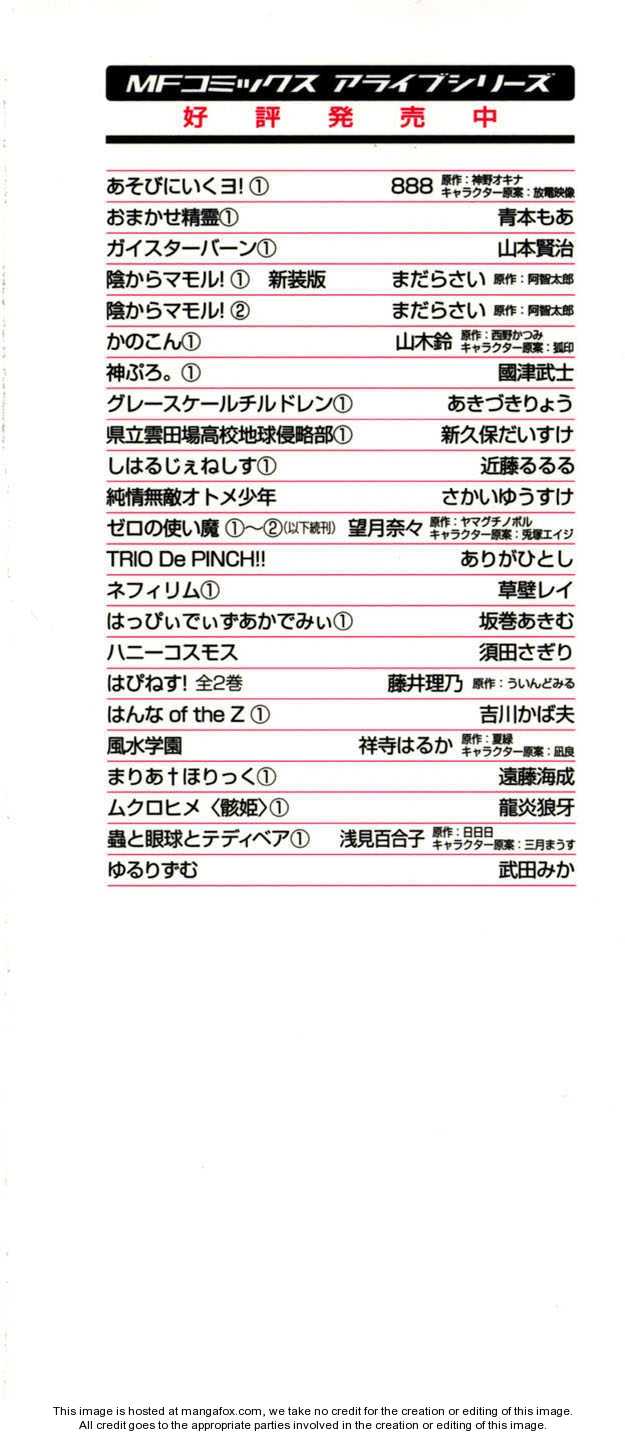 MFコミックス アライブシリーズ
好評発売中
あそびにいくヨ! ① 888 原作：神野オキナ キャラクター原案：放電映像
おまかせ精霊① 青本もあ
ガイスターバーン① 山本賢治
陰からマモル! ① 新装版 まだらさい 原作：阿智太郎
陰からマモル! ② まだらさい 原作：阿智太郎
かのこん① 山木鈴 原作：西野かつみ キャラクター原案：狐印
神ぷろ。① 國津武士
グレースケールチルドレン① あきづきりょう
県立雲田場高校地球侵略部① 新久保だいすけ
しはるじぇねしす① 近藤るるる
純情無敵オトメ少年 さかいゆうすけ
ゼロの使い魔 ①〜②(以下続刊) 望月奈々 原作：ヤマグチノボル キャラクター原案：兎塚エイジ
TRIO De PINCH!! ありがひとし
ネフィリム① 草壁レイ
はっぴぃでぃずあかでみぃ① 坂巻あきむ
ハニーコスモス 須田さぎり
はぴねす! 全2巻 藤井理乃 原作：ういんどみる
はんな of the Z ① 吉川かば夫
風水学園 祥寺はるか 原作：夏緑 キャラクター原案：凪良
まりあ†ほりっく① 遠藤海成
ムクロヒメ〈骸姫〉① 龍炎狼牙
蟲と眼球とテディベア① 浅見百合子 原作：日日日 キャラクター原案：三月まうす
ゆるりずむ 武田みか
This image is hosted at mangafox.com, we take no credit for the creation or editing of this image.
All credit goes to the appropriate parties involved in the creation or editing of this image.